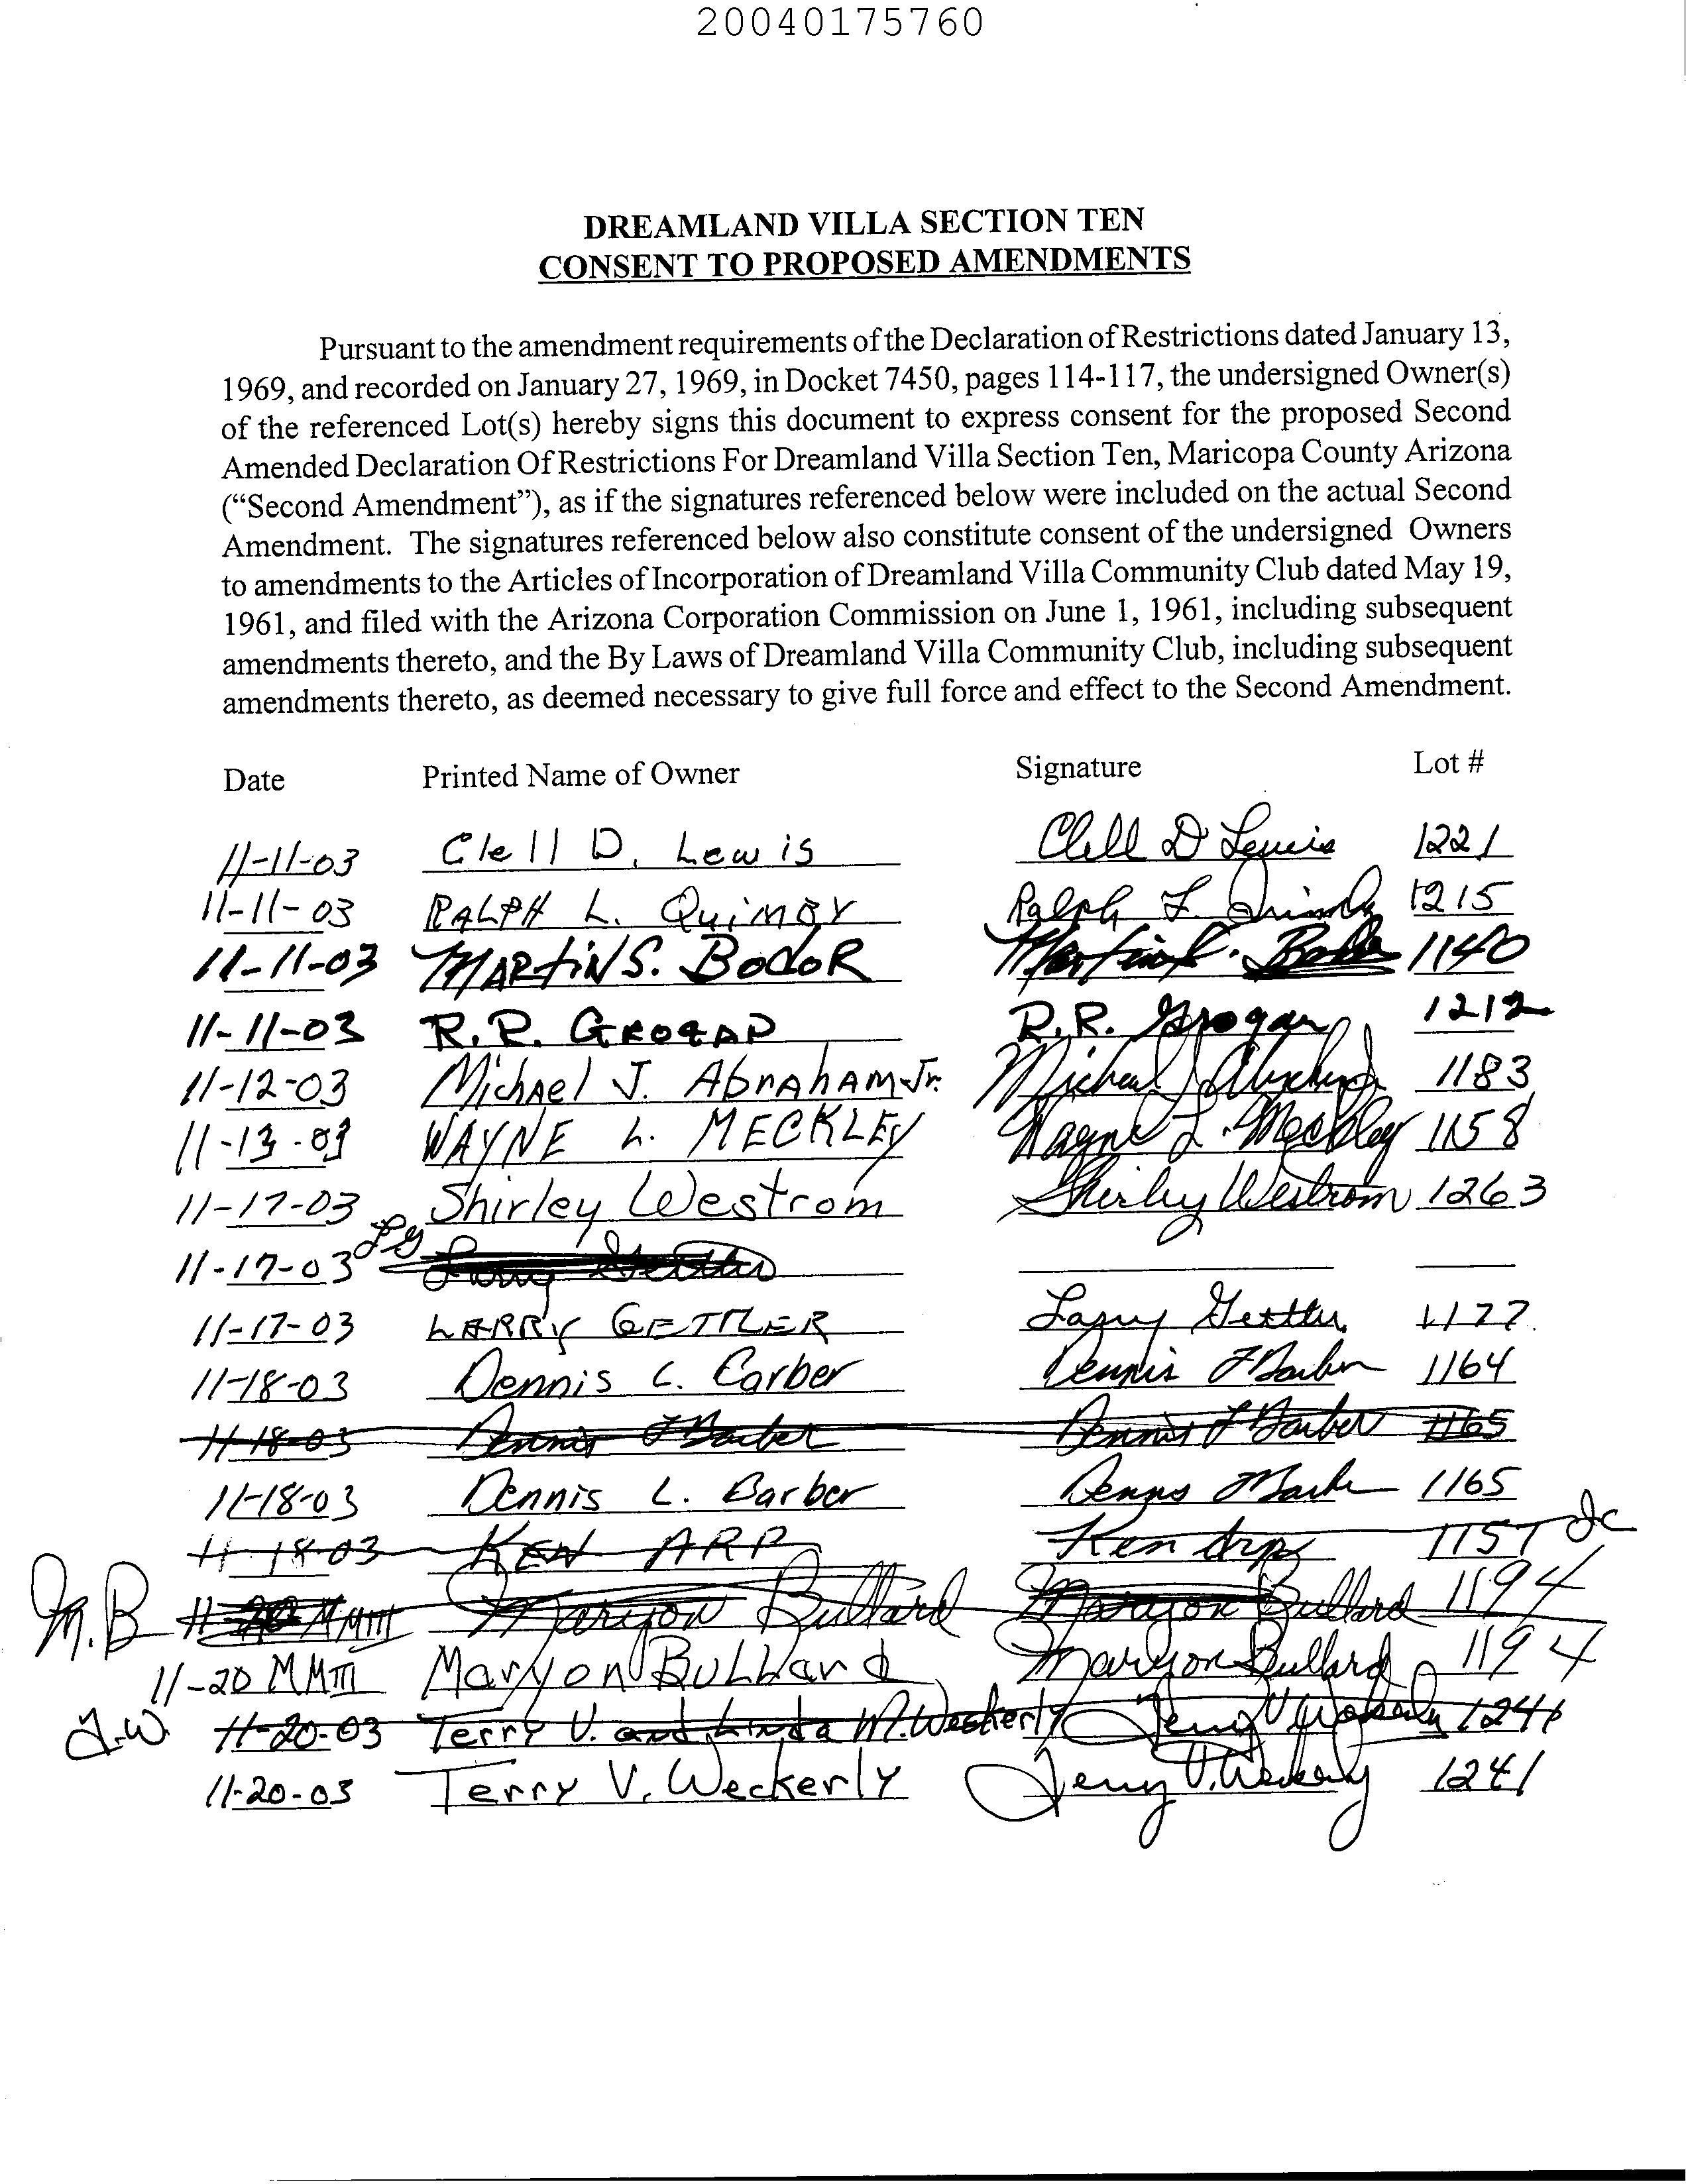 20040175760
DREAMLAND VILLA SECTION TEN
CONSENT TO PROPOSED AMENDMENTS
Pursuant to the amendment requirements of the Declaration of Restrictions dated January 13,
1969, and recorded on January 27, 1969, in Docket 7450, pages 114-117, the undersigned Owner(s)
of the referenced Lot(s) hereby signs this document to express consent for the proposed Second
Amended Declaration Of Restrictions For Dreamland Villa Section Ten, Maricopa County Arizona
("Second Amendment"), as if the signatures referenced below were included on the actual Second
Amendment. The signatures referenced below also constitute consent of the undersigned Owners
to amendments to the Articles of Incorporation of Dreamland Villa Community Club dated May 19,
1961, and filed with the Arizona Corporation Commission on June 1, 1961, including subsequent
amendments thereto, and the By Laws of Dreamland Villa Community Club, including subsequent
amendments thereto, as deemed necessary to give full force and effect to the Second Amendment.
Date Printed Name of Owner Signature Lot #
11-11-03 Clell D. Lewis Clell D Lewis 1221
11-11-03 RALPH L. QuimBY Ralph L. Quimby 1215
11-11-03 MARtiN S. BodoR Martin S. Bodor 1140
11-11-03 R.R. GROGAN R.R. Grogan 1212
11-12-03 MichAel J. AbrAhAM Jr. Michael J Abraham 1183
11-13-03 WAYNE L. MECKLEY Wayne L. Meckley 1158
11-17-03 Shirley Westrom Shirley Westrom 1263
11-17-03 LG Larry Gettler
11-17-03 LARRY GETTLER Larry Gettler 1177
11-18-03 Dennis L. Barber Dennis L Barber 1164
11-18-03 Dennis L Barber Dennis L Barber 1165
11-18-03 Dennis L. Barber Dennis L Barber 1165
11-18-03 KEN ARP Ken Arp 1157
M.B 11-20 MMIII Maryon Bullard Maryon Bullard 1194
11-20 MMIII Maryon BuLLard Maryon Bullard 1194
11-20-03 Terry V. and Linda M. Weckerly Terry V Weckerly 1241
11-20-03 Terry V. Weckerly Terry V. Weckerly 1241